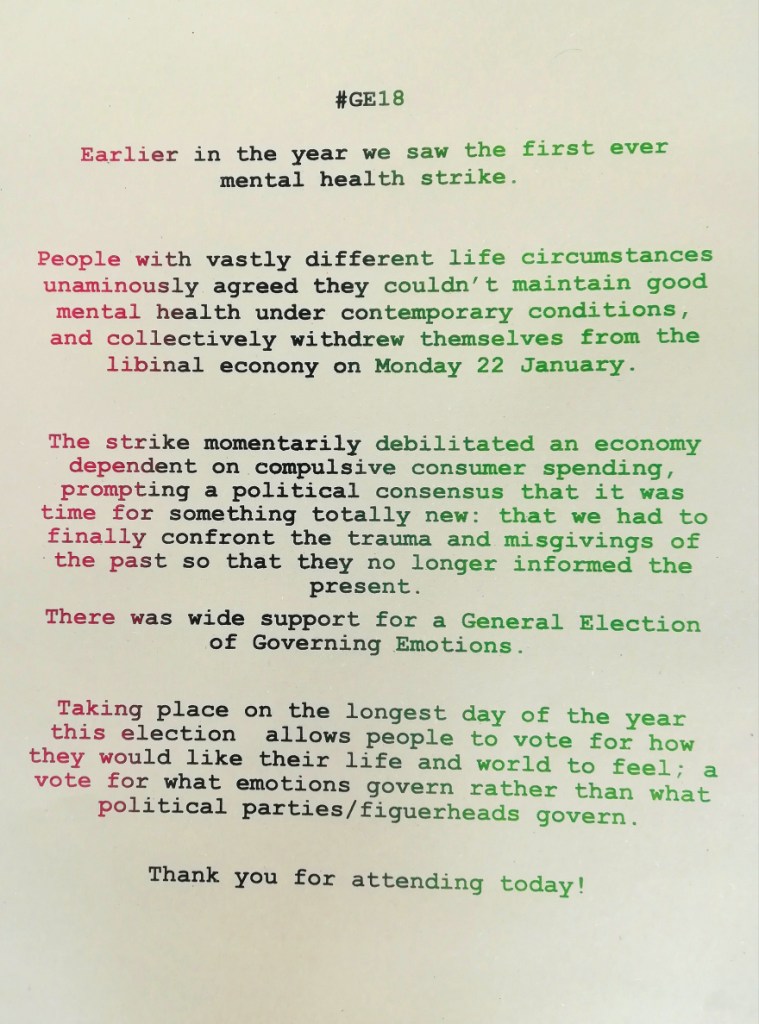 #GE18
Earlier in the year we saw the first ever
mental health strike.
People with vastly different life circumstances
unaminously agreed they couldn't maintain good
mental health under contemporary conditions,
and collectively withdrew themselves from the
libinal economy on Monday 22 January.
The strike momentarily debilitated an economy
dependent on compulsive consumer spending,
prompting a political consensus that it was
time for something totally new: that we had to
finally confront the trauma and misgivings of
the past so that they no longer informed the
present.
There was wide support for a General Election
of Governing Emotions.
Taking place on the longest day of the year
this election  allows people to vote for how
they would like their life and world to feel; a
vote for what emotions govern rather than what
political parties/figuerheads govern.
Thank you for attending today!